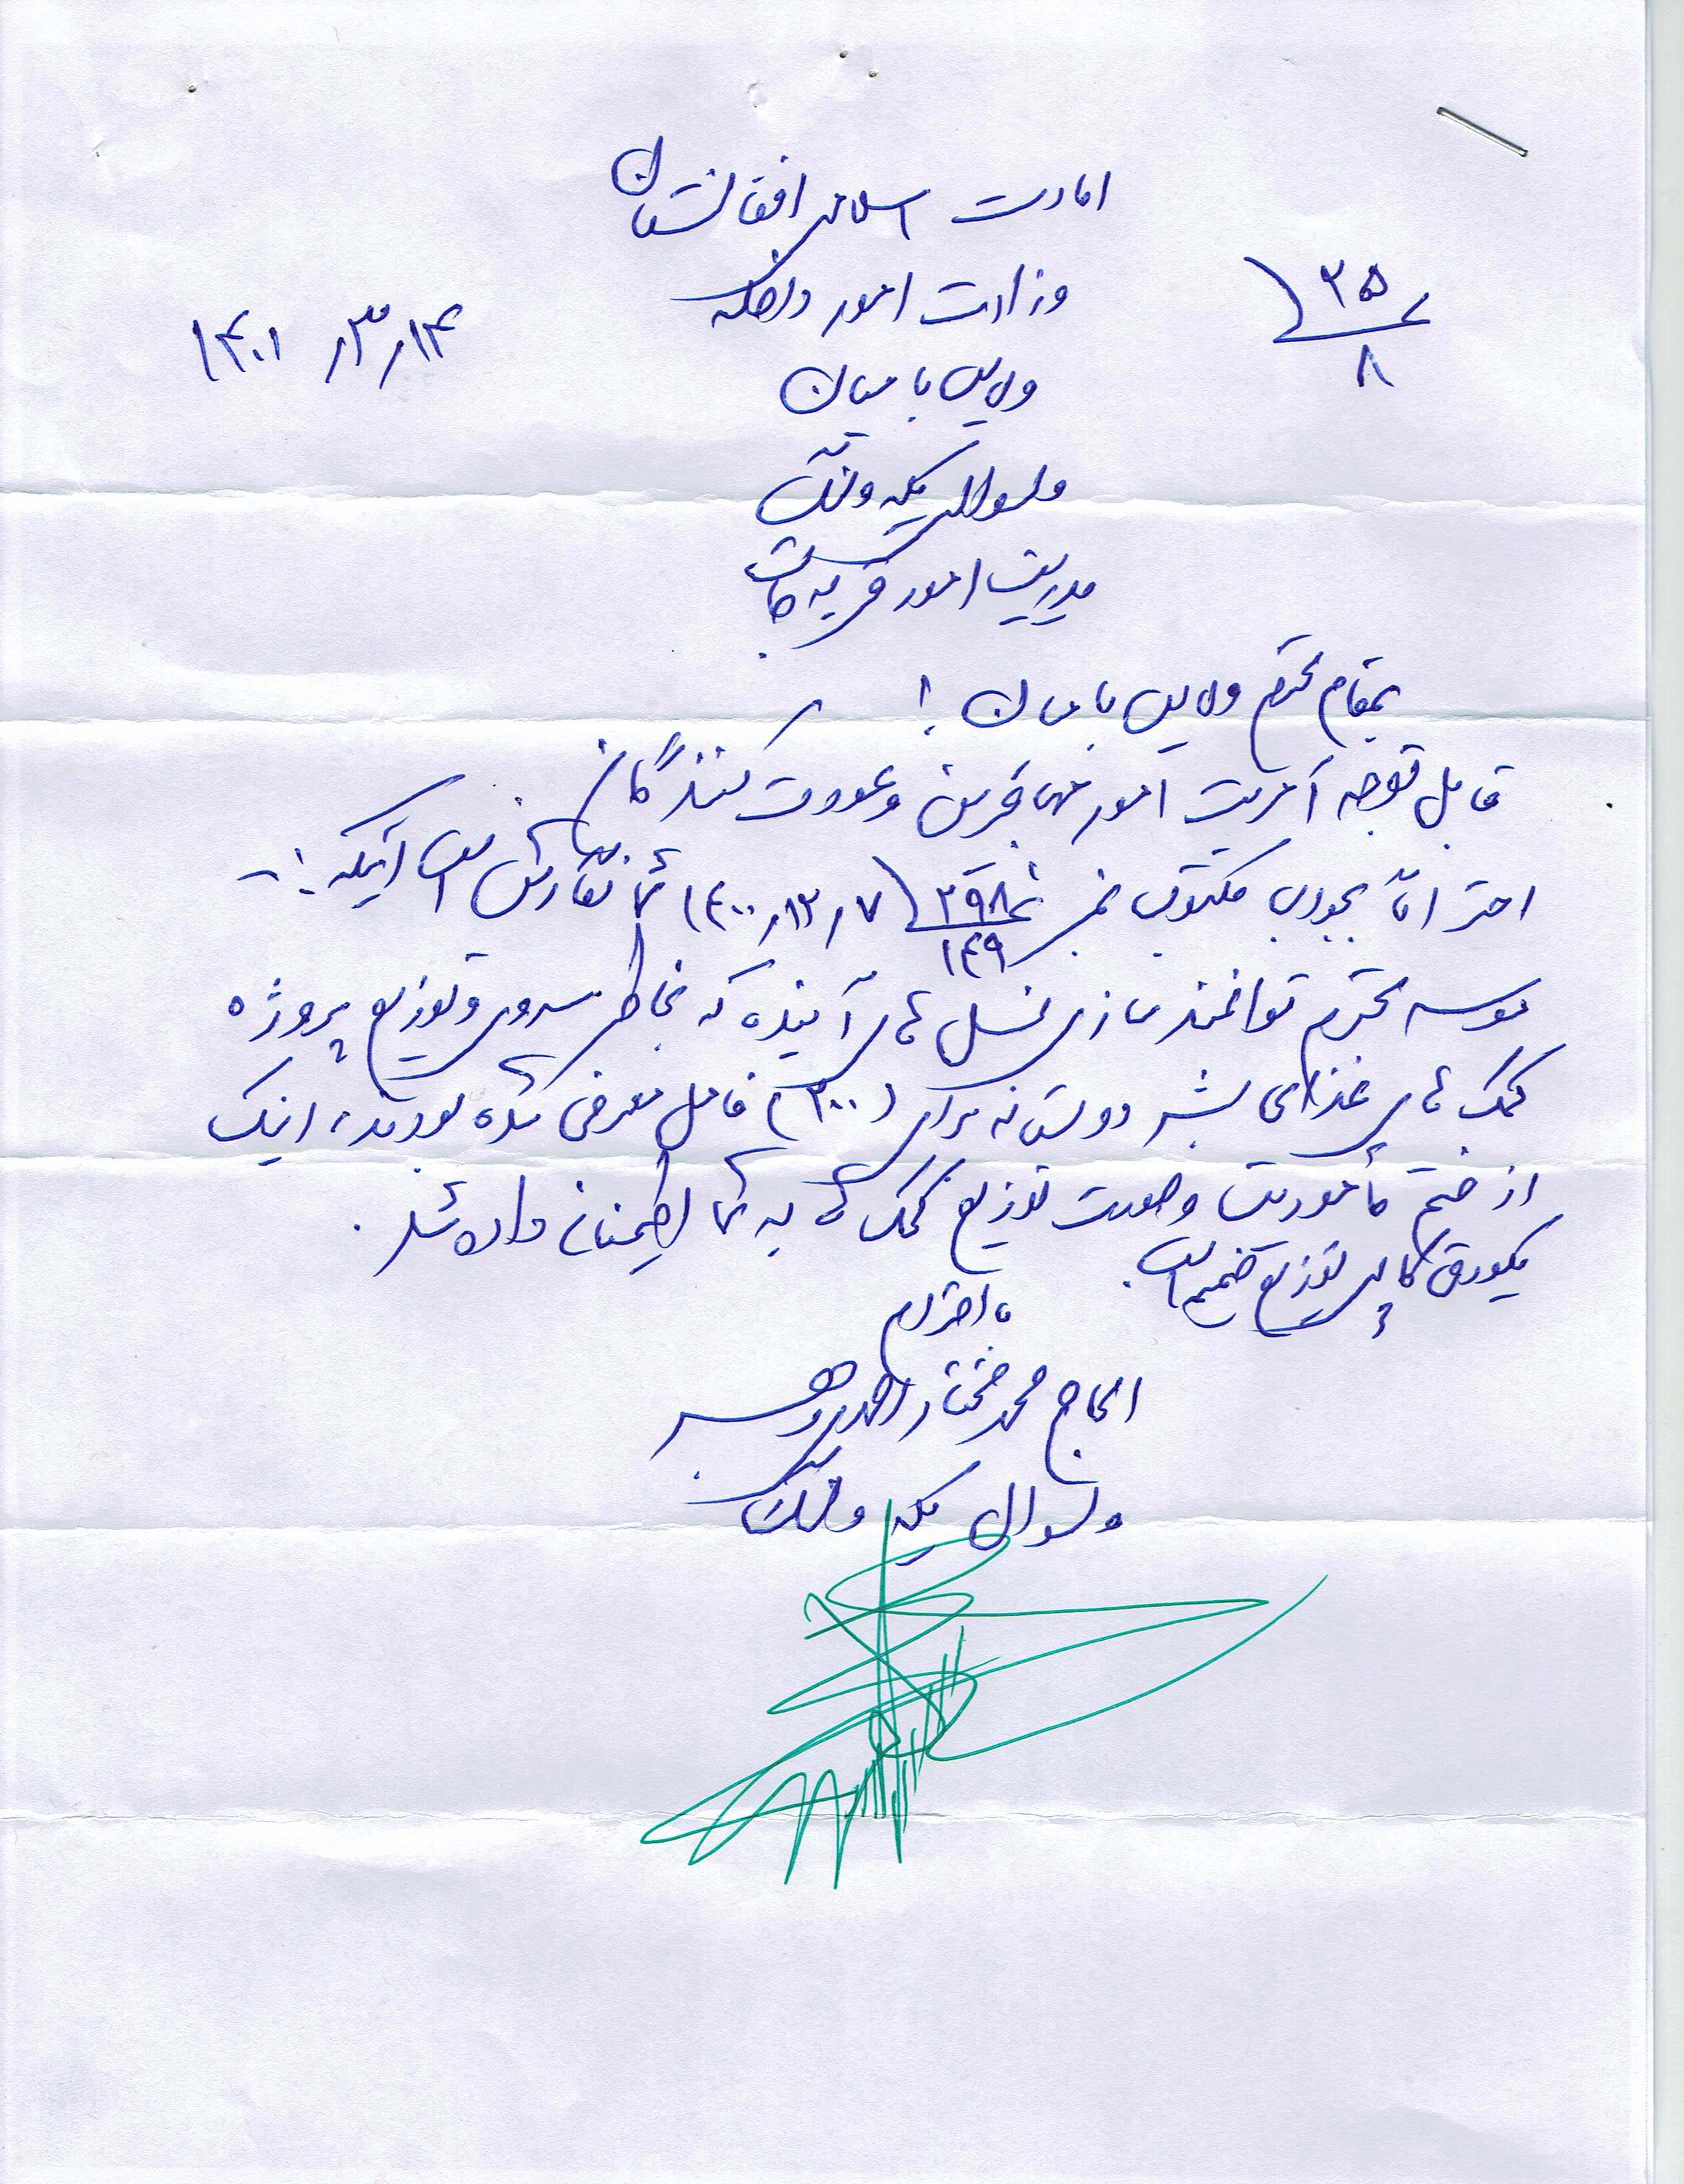 امارت اسلامی افغانستان
وزارت امور داخله
۳۵
۸
۱۴۰۱ / ۳ / ۱۴
ولایت بامیان
ولسوالی یکه ولنگ
مدیریت امور قریه جات
بمقام محترم ولایت بامیان !
قابل توجه آمریت امور مهاجرین و عودت کنندگان
احتراماً بجواب مکتوب نمبر ۳۹۸ / ۱۴۹ ۱۴۰۰/۱۲/۷ شما نگارش است اینکه :-
موسسه محترم توانمند سازی نسل های آینده که بخاطر سروی و توزیع پروژه
کمک های غذای بشر دوستانه برای (۳۰۰) فامیل معرفی شده بودند، اینک
از ختم مأموریت و صحت توزیع کمک ها به شما اطمنان داده شد .
یکورق کاپی توزیع ضمیمه است.
با احترام
الحاج محمد مختار احمد
ولسوال یکه ولنگ